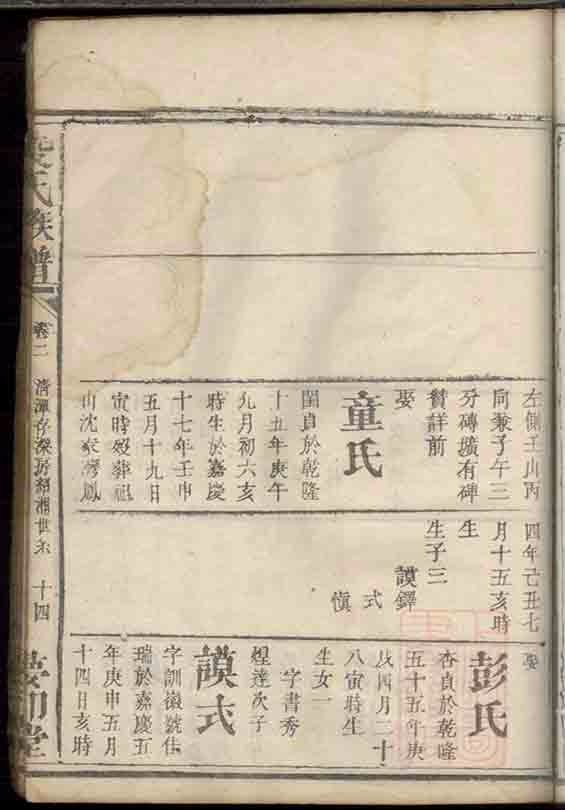 左側壬山丙
向兼子午三
分磚壙有碑
贊詳前
娶
童氏
閨貞於乾隆
十五年庚午
九月初六亥
時生於嘉慶
十七年壬申
五月十九日
寅時歿葬祖
山沈家灣鳳
四年己丑七
月十五亥時
生
生子三
謨鐸
式
慎
娶
彭氏
杏貞於乾隆
五十五年庚
戌四月二十
八寅時生
生女一
字書秀
煋達次子
謨式
字訓徽號佳
瑞於嘉慶五
年庚申五月
十四日亥時
氏族譜
卷二
清潭存深房紹湘世系
十四
夢卯堂